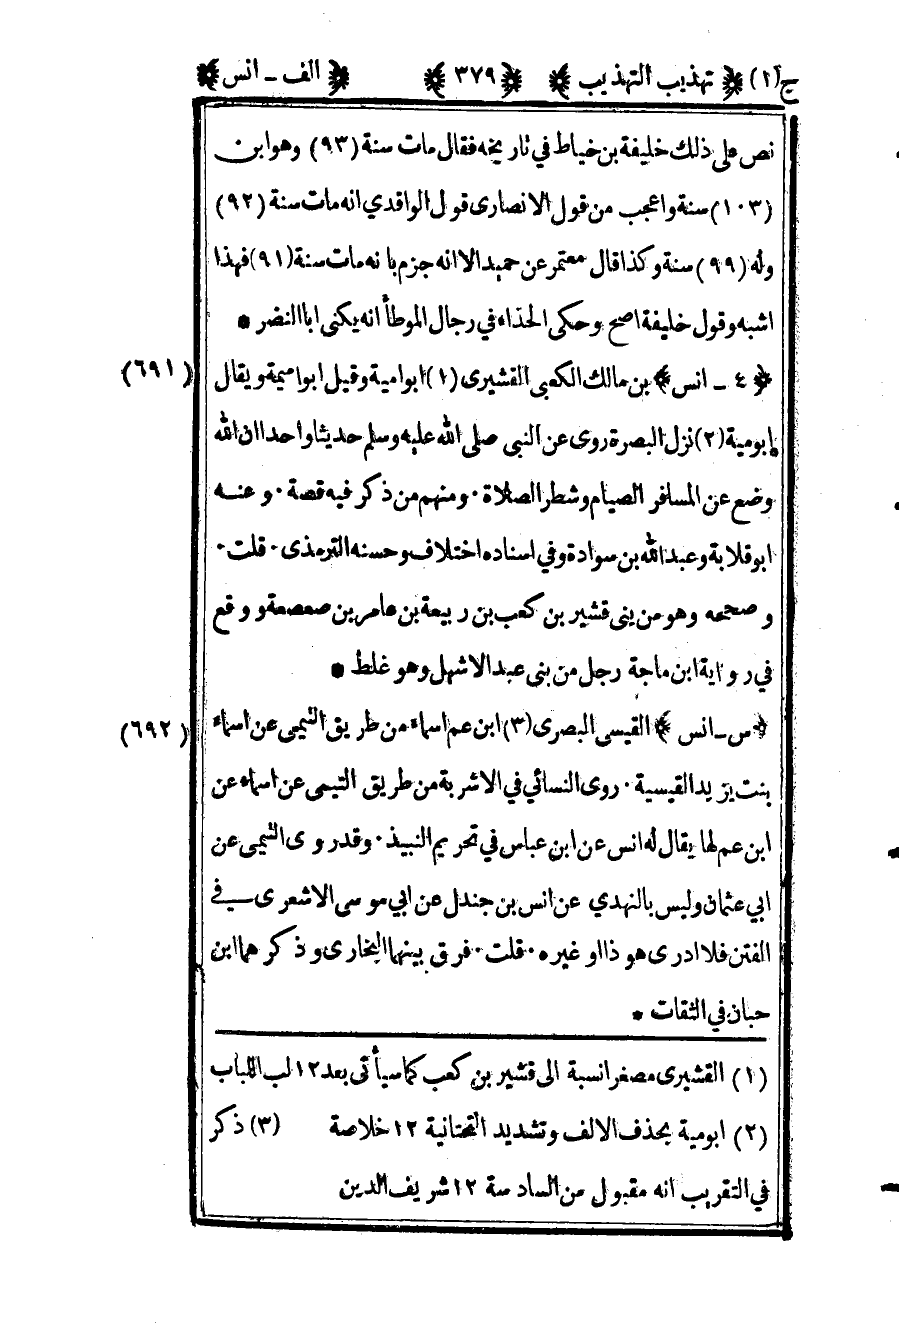 ج (١) ﴿ تهذيب التهذيب ﴾ ﴿ ٣٧٩ ﴾ ﴿ الف ـ انس ﴾
نص على ذلك خليفة بن خياط في تاريخه فقال مات سنة (٩٣) وهو ابن
(١٠٣) سنة واعجب من قول الانصارى قول الواقدي انه مات سنة (٩٢)
وله (٩٩) سنة وكذا قال معتمر عن حميد الا انه جزم بانه مات سنة (٩١) فهذا
اشبه وقول خليفة اصح وحكى الحذاء في رجال الموطأ انه يكنى ابا النضر *
﴿ ٤ ـ انس ﴾ بن مالك الكعبي القشيرى (١) ابو امية وقيل ابو اميمة ويقال (٦٩١)
ابو مية (٢) نزل البصرة روى عن النبي صلى الله عليه وسلم حديثا واحدا ان الله
وضع عن المسافر الصيام وشطر الصلاة · ومنهم من ذكر فيه قصة · وعنه
ابو قلابة وعبد الله بن سوادة وفي اسناده اختلاف وحسنه الترمذى · قلت ·
وصححه وهو من بني قشير بن كعب بن ربيعة بن عامر بن صعصعة ووقع
في رواية ابن ماجة رجل من بني عبد الاشهل وهو غلط *
﴿ س ـ انس ﴾ القيسي البصرى (٣) ابن عم اسماء من طريق التيمى عن اسماء (٦٩٢)
بنت يزيد القيسية · روى النسائي في الاشربة من طريق التيمى عن اسماء عن
ابن عم لها يقال له انس عن ابن عباس في تحريم النبيذ · وقد روى التيمى عن
ابي عثمان وليس بالنهدي عن انس بن جندل عن ابي موسى الاشعرى في
الفتن فلا ادرى هو ذا او غيره · قلت · فرق بينهما البخارى وذكرهما ابن
حبان في الثقات *
(١) القشيرى مصغرا نسبة الى قشير بن كعب كما سيأتى بعد ١٢ لب اللباب
(٢) ابو مية بحذف الالف وتشديد التحتانية ١٢ خلاصة (٣) ذكر
في التقريب انه مقبول من السادسة ١٢ شريف الدين